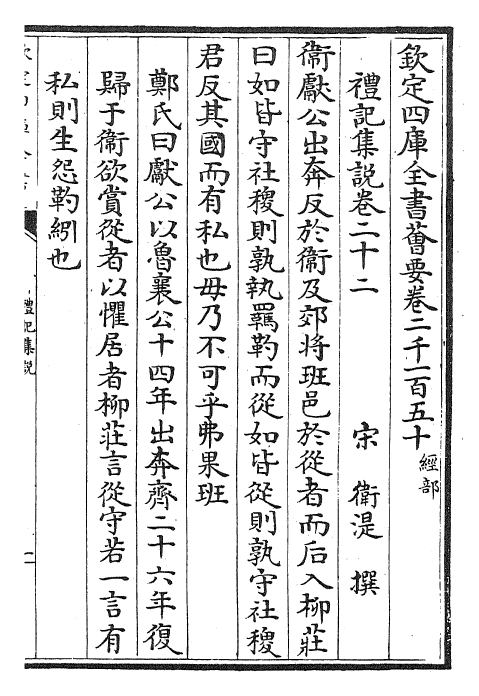 欽定四庫全書薈要卷二千一百五十 經部
禮記集説卷二十二 宋 衛湜 撰
衛獻公出奔反於衛及郊將班邑於從者而后入柳莊
曰如皆守社稷則孰執羈靮而從如皆從則孰守社稷
君反其國而有私也毋乃不可乎弗果班
鄭氏曰獻公以魯襄公十四年出奔齊二十六年復
歸于衛欲賞從者以懼居者柳莊言從守若一言有
私則生怨靮紖也
禮記集説